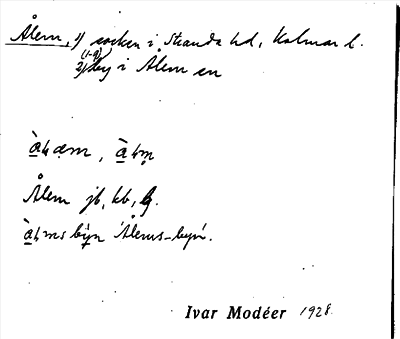 Ålem, 1) socken i Stranda hd, Kalmar l.
(1-9)
2) by i Ålem sn
Ålem jb, kb, lj.
by̹n 'Ålems-byn'.
Ivar Modéer 1928